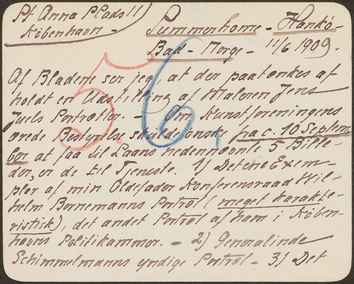 Pt. Anna Plads 11
København -
Summenhome - Hankø-
Bad - Norge - 11/6 1909.
Af Bladene ser jeg, at der paatænkes af
holdt en Udstilling af Maleren Jens
Juels Portræter. - Om Kunstforeningens
ærede Bestyrelse skulde ønske fra c. 10 Septem
ber at faa til Laans nedennævnte 5 Bille-
der, er de til Tjeneste. 1) Det ene Exem-
plar af min Oldefader Konferensraad Wil-
helm Bornemanns Portræt (meget karakte-
ristisk), det andet Portræt af ham i Køben-
havns Politikammer. - 2) Generalinde
Schimmelmanns yndige Portræt - 3) Det
56.